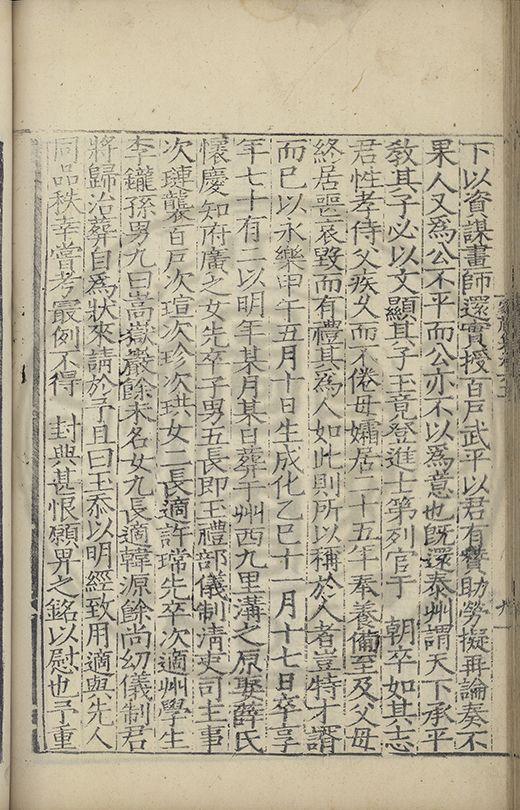 下以資謀畫師還實授百戶武平以君有贊助勞擬再論奏不
果人又爲公不平而公亦不以爲意也旣還泰州謂天下承平
敎其子必以文顯其子玉竟登進士第列官于　朝卒如其志
君性孝侍父疾久而不倦母孀居二十五年奉養備至及父母
終居喪哀毀而有禮其爲人如此則所以稱於人者豈特才諝
而已以永樂甲午五月十日生成化乙巳十一月十七日卒享
年七十有二以明年某月某日葬于州西九里溝之原娶薛氏
懷慶知府廣之女先卒子男五長即玉禮部儀制淸吏司主事
次璉襲百戶次瑄次珍次珙女二長適許瑺先卒次適州學生
李鑨孫男九曰嵩嶽巖餘未名女九長適韓源餘尚幼儀制君
將歸治葬自爲狀來請於予且曰玉忝以明經致用適與先人
同品秩幸嘗考最例不得　封典甚恨願畀之銘以慰也予重